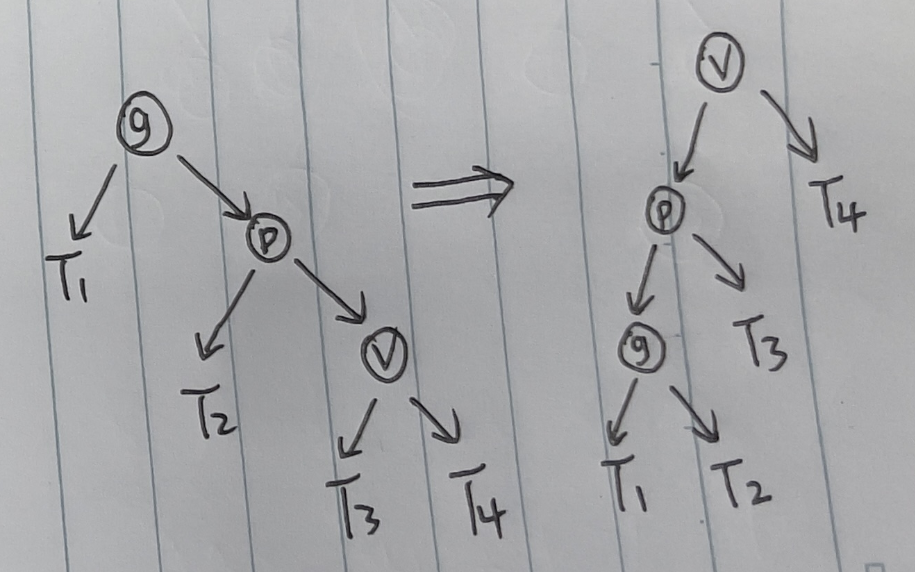 g
T1
p
T2
V
T3 T4
⇒
V
T4
p
T3
g
T1 T2